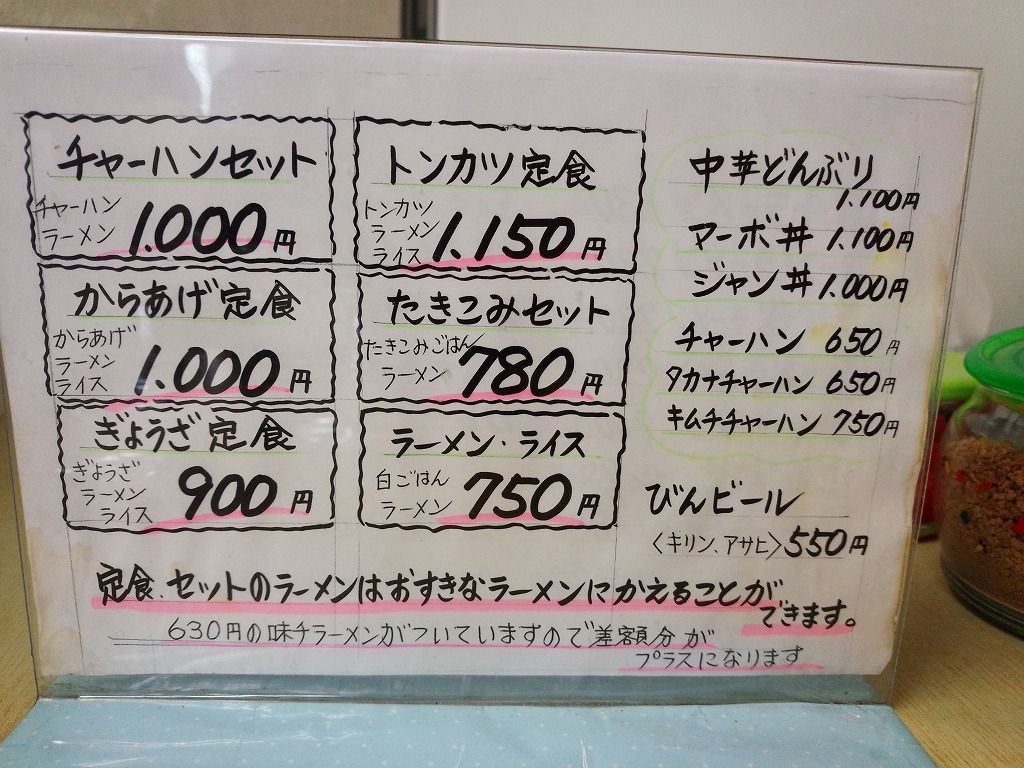 チャーハンセット
チャーハン
ラーメン
1.000円
からあげ定食
からあげ
ラーメン
ライス
1.000円
ぎょうざ定食
ぎょうざ
ラーメン
ライス
900円
トンカツ定食
トンカツ
ラーメン
ライス
1.150円
たきこみセット
たきこみごはん
ラーメン
780円
ラーメン・ライス
白ごはん
ラーメン
750円
中華どんぶり
1.100円
マーボ丼 1.100円
ジャン丼 1.000円
チャーハン 650円
タカナチャーハン 650円
キムチチャーハン 750円
びんビール
〈キリン、アサヒ〉550円
定食、セットのラーメンはおすきなラーメンにかえることが
できます。
630円の味千ラーメンがついていますので差額分が
プラスになります